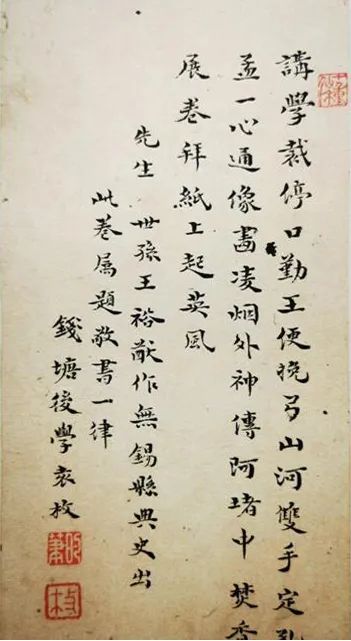 講學裁停口勤王便挽弓山河雙手定孔
孟一心通像畫凌烟外神傳阿堵中焚香
展卷拜紙上起英風
先生 世孫王裕猷作無錫縣典史出
此卷属題敬書一律
錢塘後學袁枚